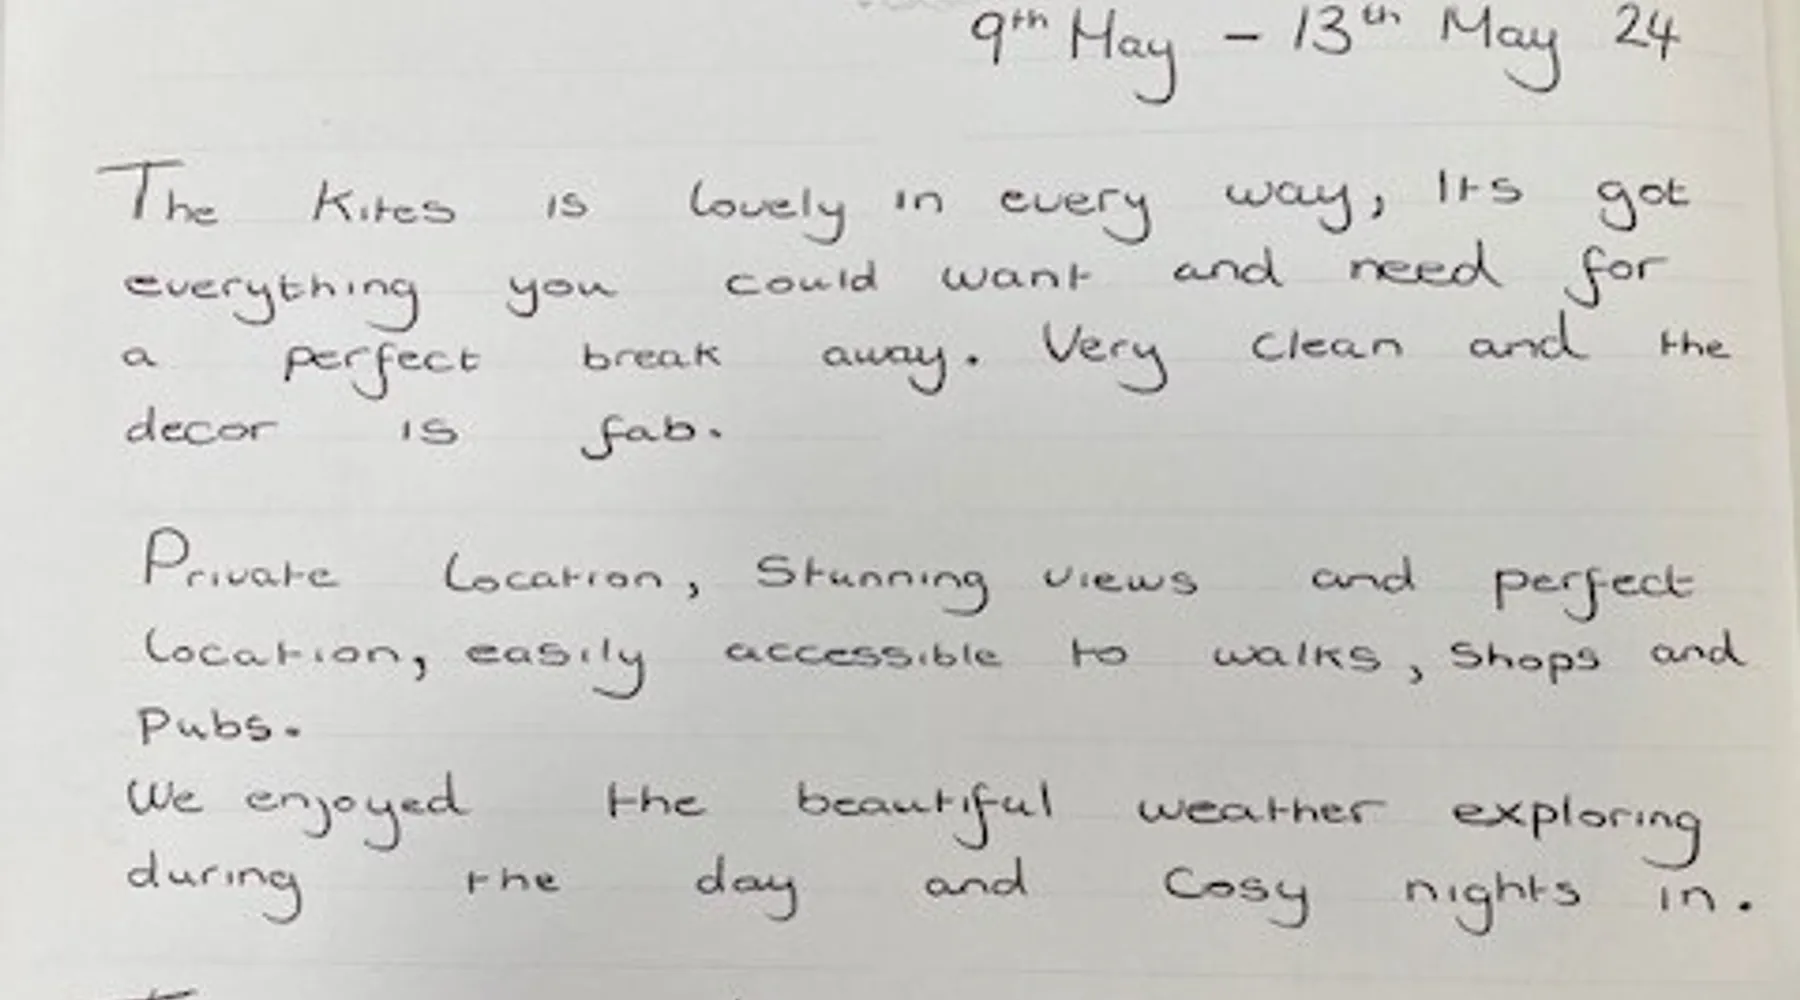 9th May - 13th May 24
The Kites is lovely in every way, Its got
everything you could want and need for
a perfect break away. Very clean and the
decor is fab.
Private Location, Stunning views and perfect
Location, easily accessible to walks, Shops and
Pubs.
We enjoyed the beautiful weather exploring
during the day and Cosy nights in.